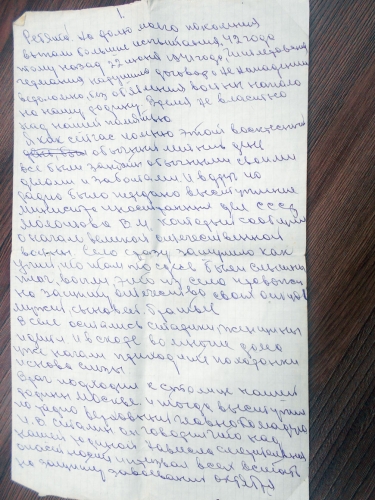 1
Ребята. На долю моего поколения
выпали большие испытания. 42 года
тому назад 22 июня 1941 года, Гитлеровская
германия нарушив договор о не нападении
вероломно, без об'явления войны напала
на нашу родину. Время не властно
над нашей памятью
Я как сейчас помню этот воскресный
обычный летний день
все были заняты обычными своими
делами и заботами и вдруг по
радио было передано выступление
министра иностранных дел СССР
Молотова В.М. который сообщил
о начале великой отечественной
войны. Село сразу
то там то здесь были слышны
плач, вопли это из села провожали
на защиту отечества своих отцов
мужей, сыновей братьев
В селе остались старики женщины
дети и вскоре во многие дома
уже начали приходить похоронки
и снова слезы
Враг подходил к столице нашей
родины Москве и тогда выступил
по радио верховный главнокомандующий
И.В. Сталин он говорил что над
нашей родиной нависла смертельная
опасность и призвал всех встать
на защиту завоеваний октября